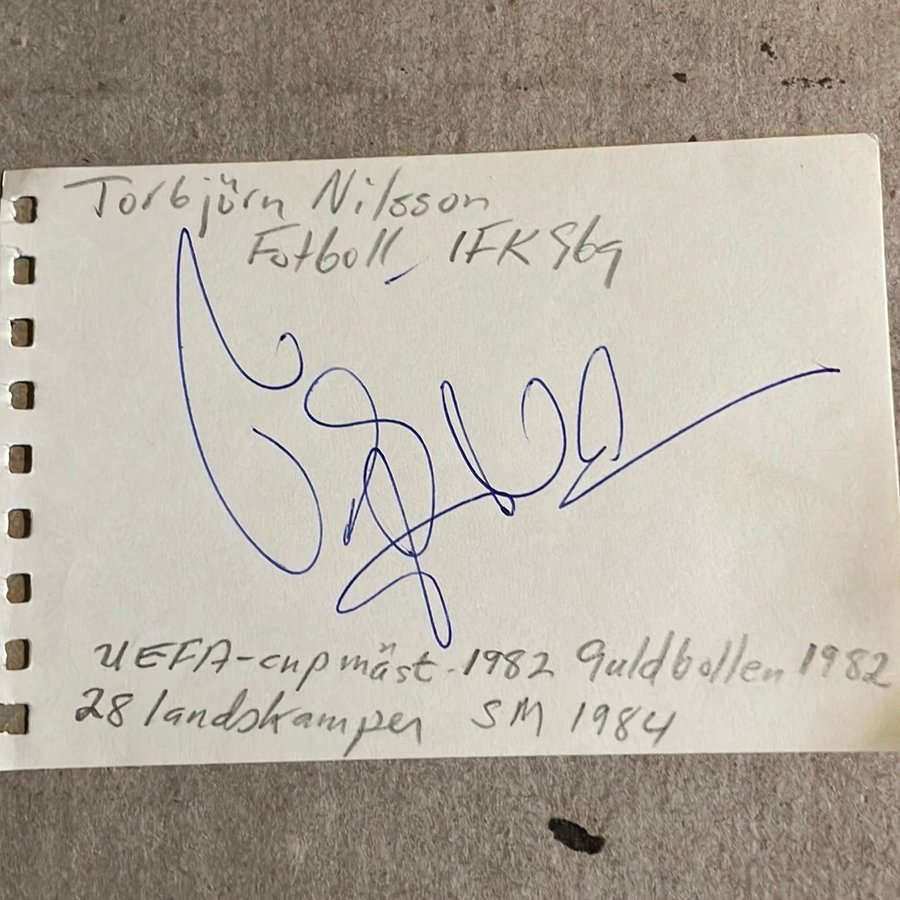 Torbjörn Nilsson
Fotboll, IFK Gbg
UEFA-cupmäst. 1982 Guldbollen 1982
28 landskamper SM 1984